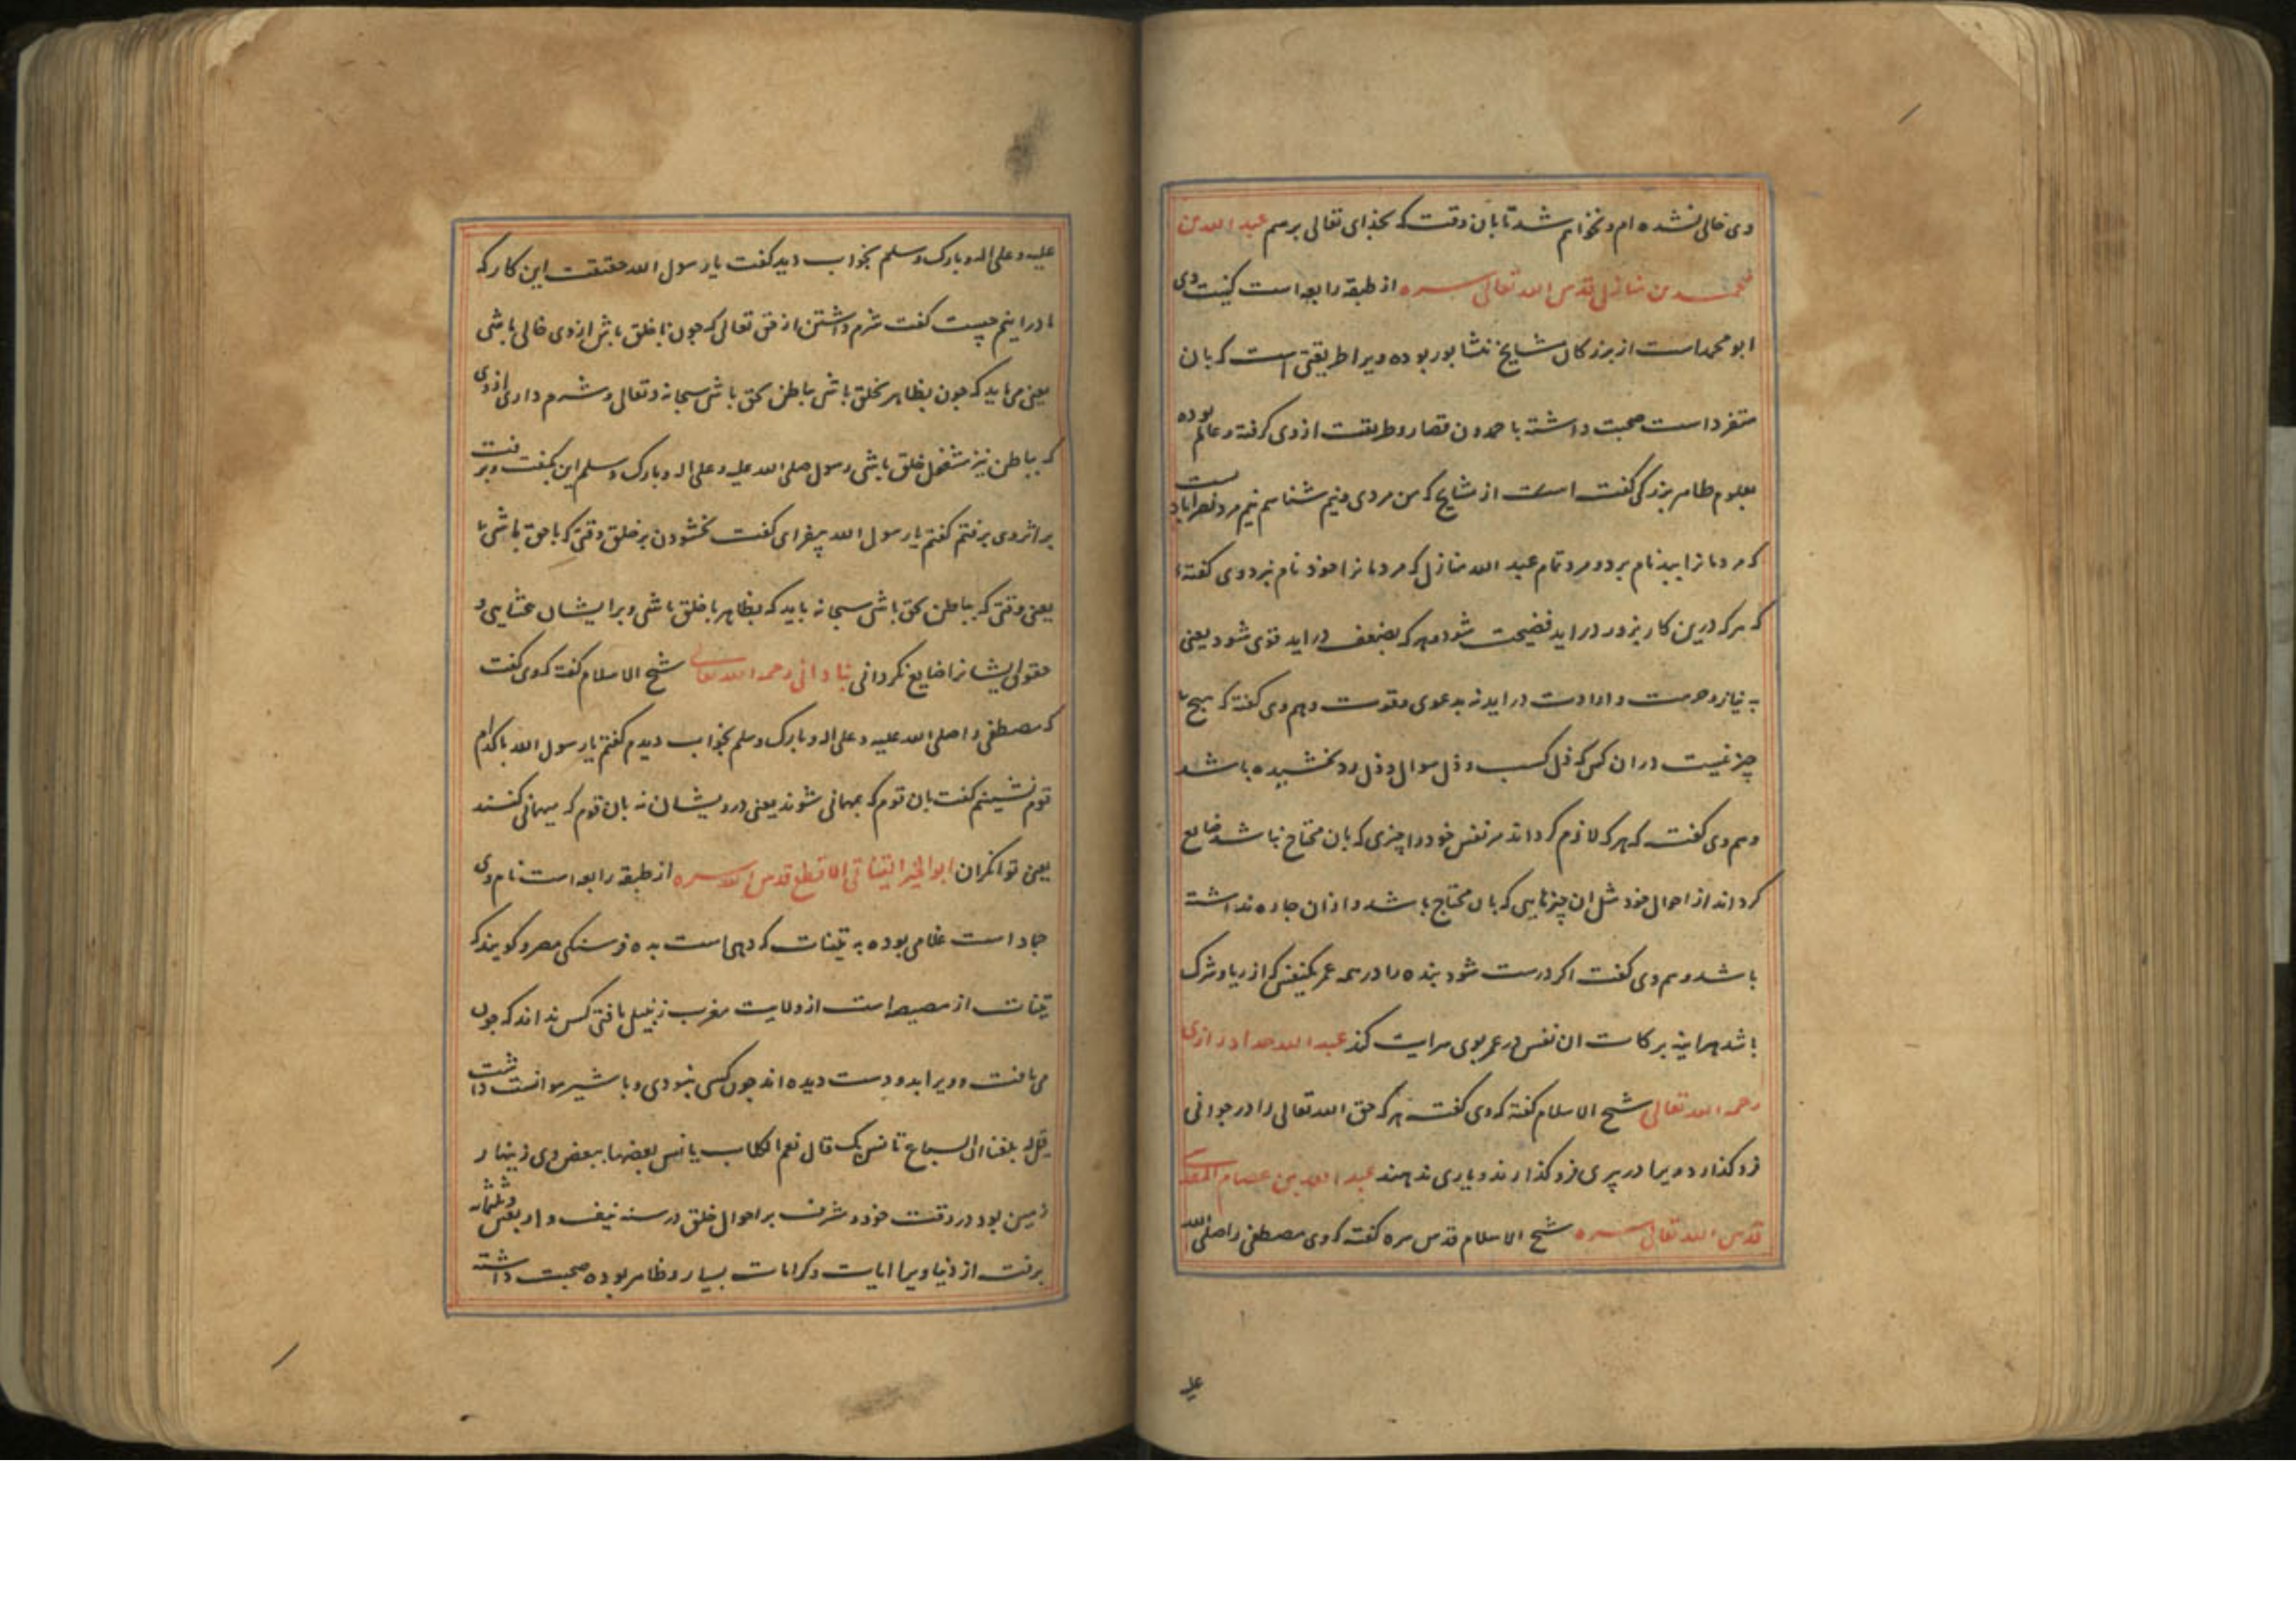 وی خالی نشده ام و نخواهم شد تا بان وقت که بخدای تعالی برسم عبد الله بن
محمد بن منازل قدس الله تعالی سره از طبقه رابعه است کنیت وی
ابو محمد است از بزرکان مشایخ نشابور بوده ویرا طریقتی است که بان
متفرد است صحبت داشته با حمدون قصار و طریقت از وی کرفته و عالم بوده
بعلوم ظاهر بزرکی کفت است از مشایخ که من مردی و نیم شناسم نیم مرد نصرابادیست
که مردمانرا ببد نام برد و مرد تمام عبد الله منازل که مردمانرا خود نام نبرد وی کفته
که هرکه درین کار بزور دراید فضیحت شود و هرکه بضعف دراید قوی شود یعنی
به نیاز و حرمت و ارادت دراید نه بدعوی و قوت و هم وی کفته که هیچ
چیز نیست دران کس که ذل کسب و ذل سوال و ذل رد نخشیده باشد
و هم وی کفت که هرکه لازم کرداند مر نفس خود را چیزی که بان محتاج نباشد ضایع
کرداند از احوال خود مثل ان چیزهایی که بان محتاج باشد و ازان چاره نداشته
باشد و هم وی کفت اکر درست شود بنده را در همه عمر یکنفس که از ریا و شرک
باشد هراینه برکات ان نفس در عمر بوی سرایت کند عبد الله حداد رازی
رحمه الله تعالی شیخ الاسلام کفته که وی کفت هرکه حق الله تعالی را در جوانی
فرو کذارد ویرا در پیری فرو کذارند و یاری ندهند عبد الله بن عصام المقدسی
قدس الله تعالی سره شیخ الاسلام قدس سره کفته که وی مصطفی را صلی الله
علیه
علیه و علی اله و بارک و سلم بخواب دید کفت یا رسول الله حقیقت این کار که
ما دراینم چیست کفت شرم داشتن از حق تعالی که چون با خلق باشی از وی خالی باشی
یعنی می باید که چون بظاهر بخلق باشی بباطن بحق باشی سبحانه و تعالی و شرم داری از وی
که بباطن نیز مشغول خلق باشی رسول صلی الله علیه و علی اله و بارک و سلم این بکفت و برفت
بر اثر وی برفتم کفتم یا رسول الله بیفزای کفت بخشودن بر خلق وقتی که با حق باشی
یعنی وقتی که بباطن بحق باشی سبحانه باید که بظاهر با خلق باشی و بر ایشان بخشایی و
حقوق ایشانرا ضایع نکردانی نباذانی رحمه الله تعالی شیخ الاسلام کفته که وی کفت
که مصطفی را صلی الله علیه و علی اله و بارک و سلم بخواب دیدم کفتم یا رسول الله با کدام
قوم نشینم کفت بان قوم که بمهمانی شوند یعنی درویشان نه بان قوم که میهمانی کنند
یعنی توانکران ابو الخیر التیناتی الاقطع قدس الله سره از طبقه رابعه است نام وی
حماد است غلامی بوده به تینات که دهی است بده فرسنکی مصر و کویند که
تینات از مصیصه است از ولایت مغرب زنبیل بافتی کس نداند که چون
می بافت و ویرا بدو دست دیده اند چون کسی نبودی و با شیر موانست داشت
قیل له بلغنا ان السباع تانس بک قال نعم الکلاب یانس بعضها ببعض وی زینهار
زمین بود در وقت خود و مشرف بر احوال خلق در سنه نیف و اربعین و ثلثمایه
برفت از دنیا ویرا ایات و کرامات بسیار و ظاهر بوده صحبت داشته